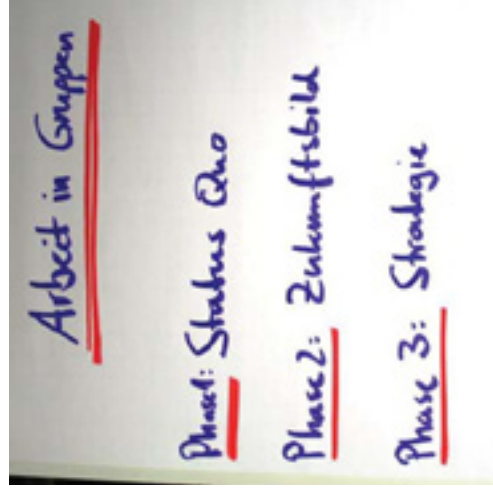 Arbeit in Gruppen
Phase1: Status Quo
Phase 2: Zukunftsbild
Phase 3: Strategie